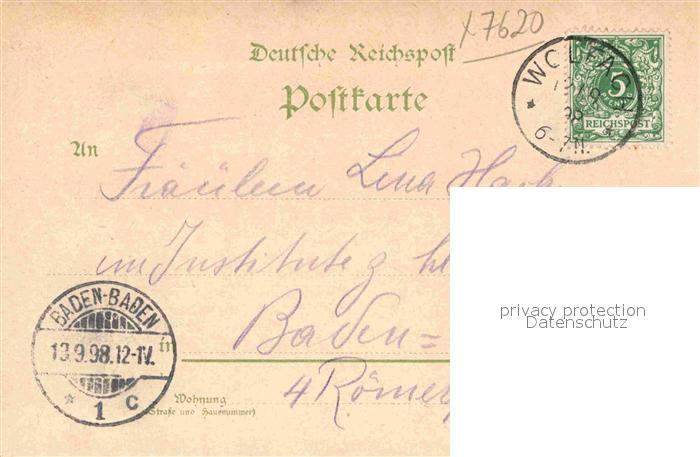 x7620
Deutsche Reichspost
Postkarte
WOLFACH
5
98
6-7N.
REICHSPOST
An
Fräulein Lena
im Institute z hl
BADEN-BADEN
13.9.98.12-1V.
* 1 c
in
Baden=
Wohnung
(Straße und Hausnummer)
4
privacy protection
Datenschutz